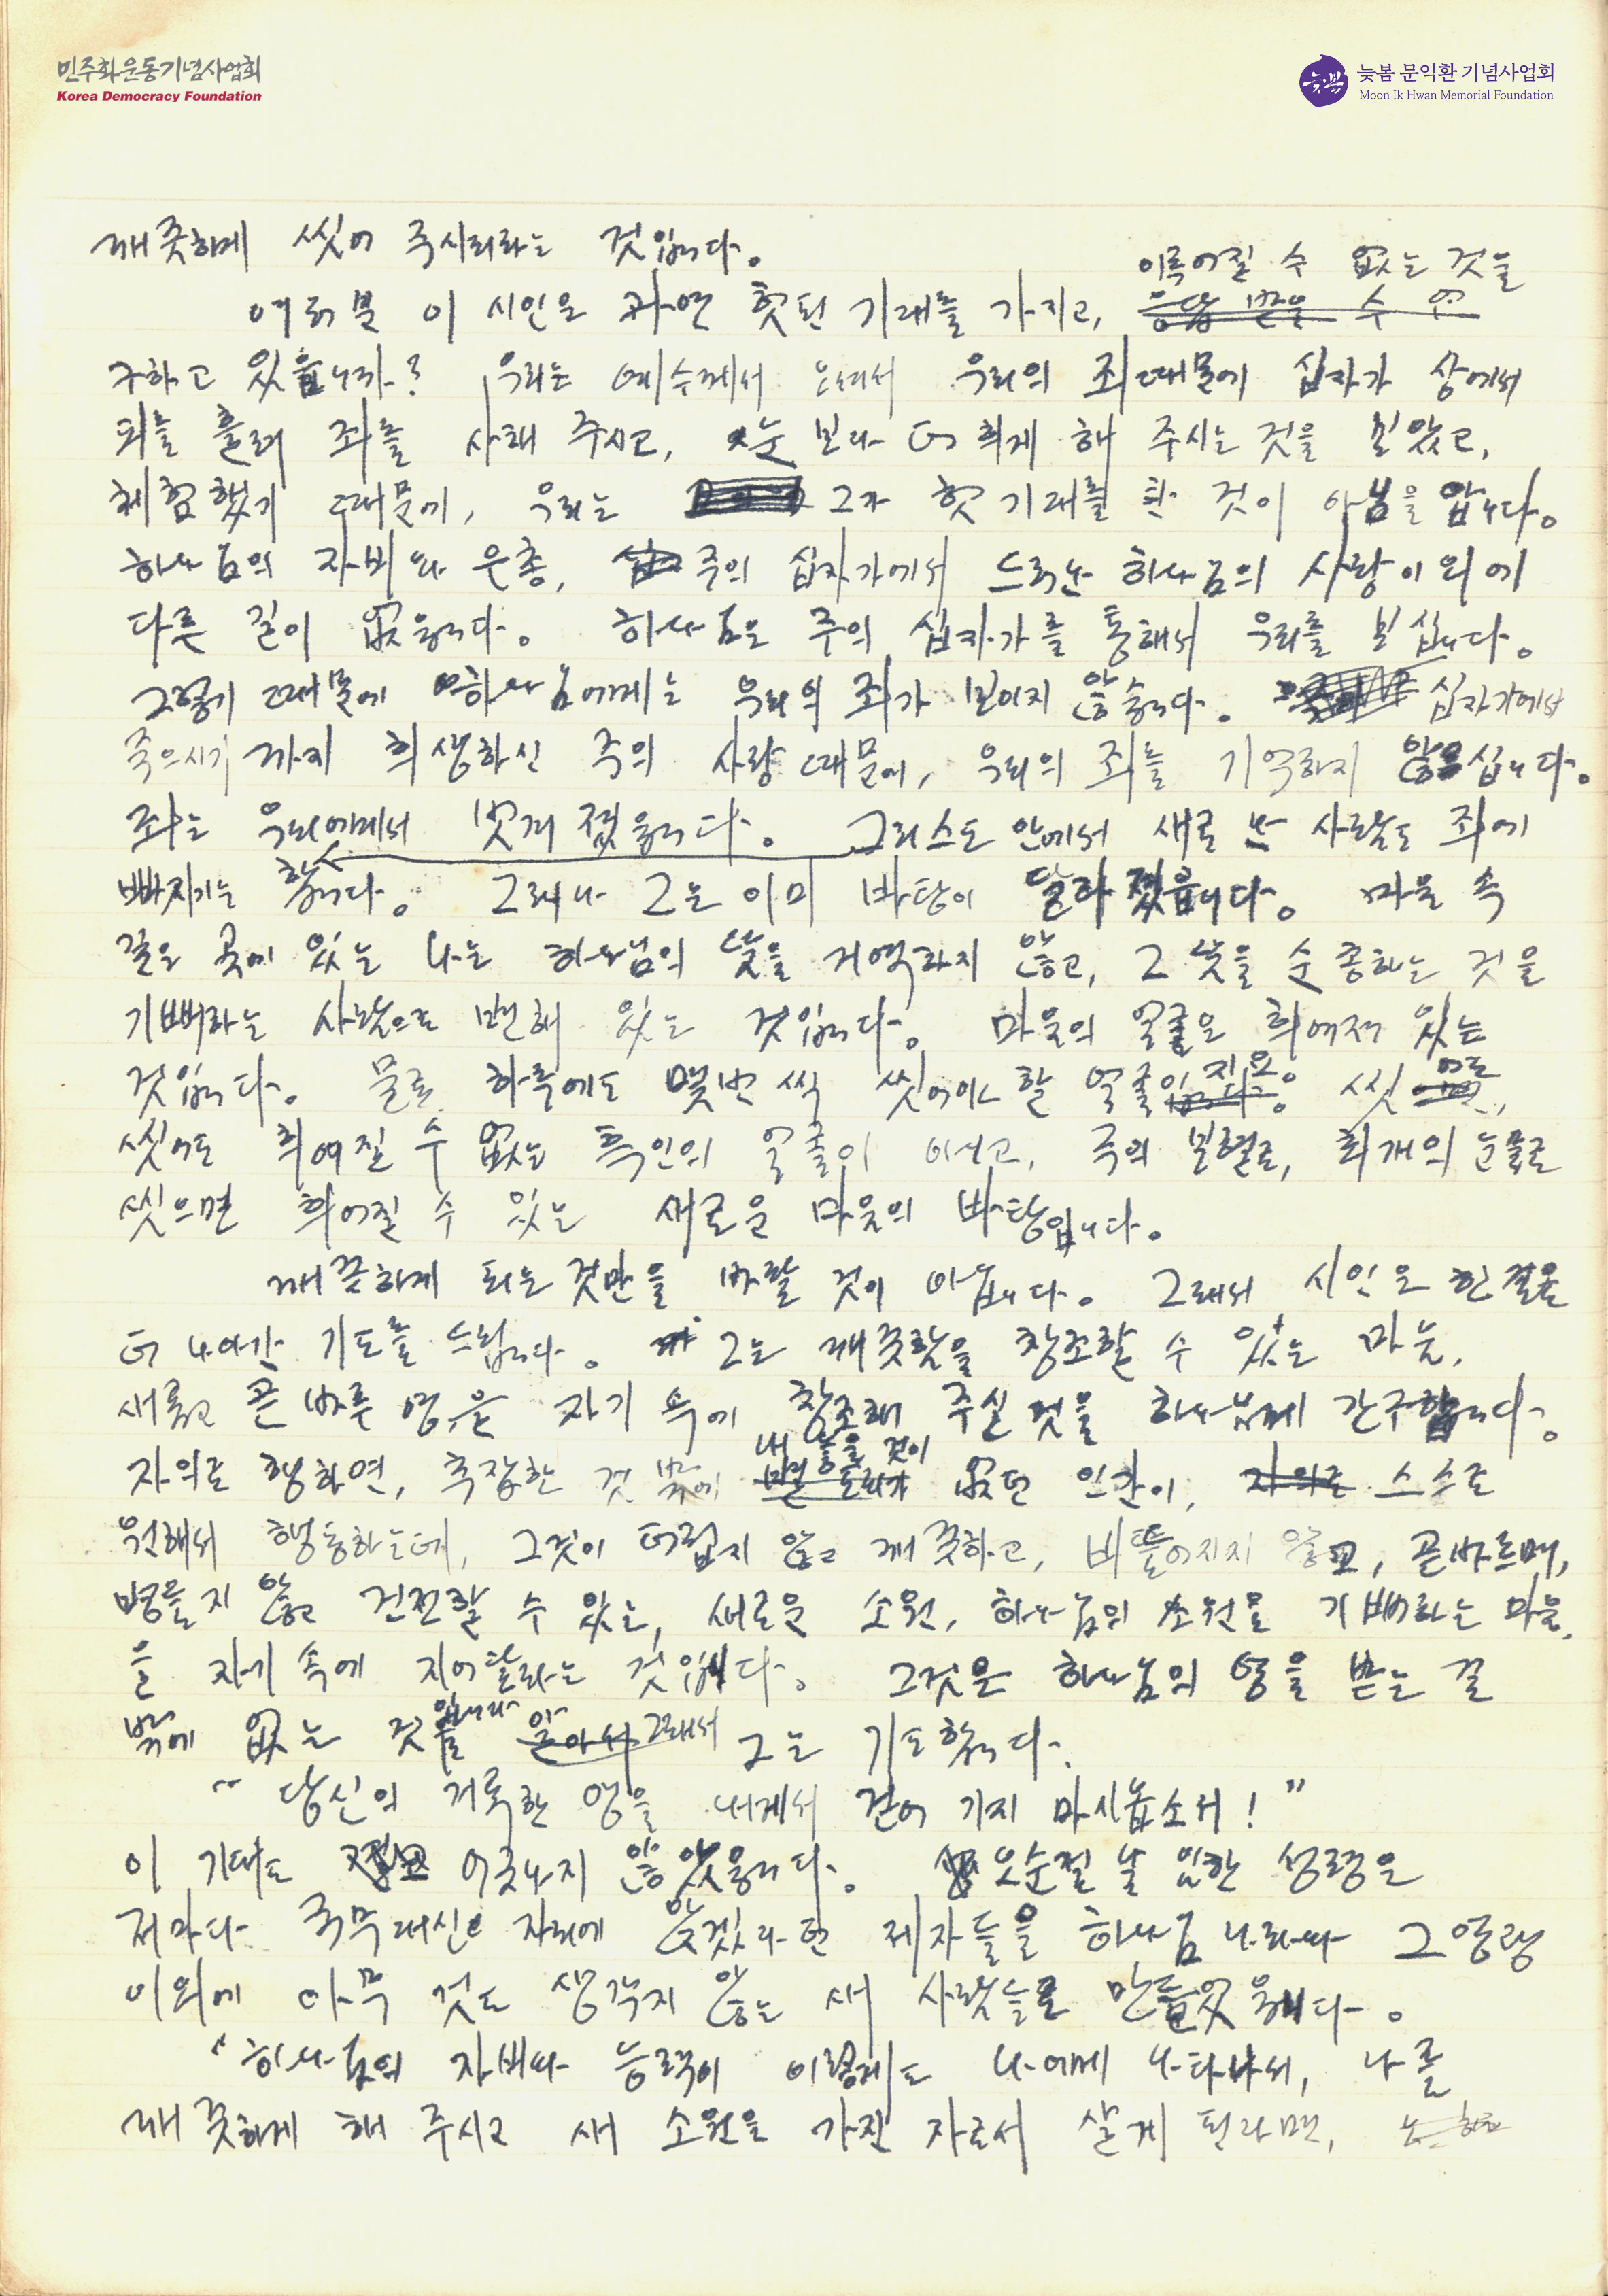 민주화운동기념사업회
Korea Democracy Foundation
늦봄 문익환 기념사업회
Moon Ik Hwan Memorial Foundation
깨끗하게 씻어 주시리라는 것입니다.
이루어질 수 없는 것을
여러분 이 시인은 과연 헛된 기대를 가지고, 응답 받을 수 없
구하고 있읍니까? 우리는 예수께서 오셔서 우리의 죄 때문에 십자가 상에서
피를 흘려 죄를 사해 주시고, 눈 보다 더 희게 해 주시는 것을 믿었고,
체험했기 때문에, 우리는 그가 헛 기대를 한 것이 아님을 압니다.
하나님의 자비와 은총, 주의 십자가에서 드러난 하나님의 사랑 이외에
다른 길이 없읍니다. 하나님은 주의 십자가를 통해서 우리를 보십니다.
그렇기 때문에 하나님에게는 우리의 죄가 보이지 않습니다. 십자가에서
죽으시기 까지 희생하신 주의 사랑 때문에, 우리의 죄를 기억하지 않으십니다.
죄는 우리에게서 벗겨 졌읍니다. 그리스도 안에서 새로 난 사람도 죄에
빠지기는 합니다. 그러나 그는 이미 바탕이 달라 졌읍니다. 마음 속
깊은 곳에 있는 나는 하나님의 뜻을 거역하지 않고, 그 뜻을 순종하는 것을
기뻐하는 사람으로 변해 있는 것입니다. 마음의 얼굴은 희여져 있는
것입니다. 물론 하루에도 몇번 씩 씻어야 할 얼굴입니다 지요. 씻 어도
씻어도 희여질 수 없는 흑인의 얼굴이 아니고, 주의 보혈로, 회개의 눈물로
씻으면 희어질 수 있는 새로운 마음의 바탕입니다.
깨끗하게 되는 것만을 바랄 것이 아닙니다. 그래서 시인은 한 걸음
더 나아간 기도를 드립니다. 그는 깨끗함을 창조할 수 있는 마음,
새롭고 곧 바른 영을 자기 속에 창조해 주실 것을 하나님께 간구합니다.
내 놓을 것이
자의로 행하면, 추잡한 것 밖에 별 도리가 없던 인간이, 자의로 스스로
원해서 행동하는데, 그것이 더럽지 않고 깨끗하고, 비뚤어지지 않고, 곧바르며,
병들지 않고 건전할 수 있는, 새로운 소원, 하나님의 소원을 기뻐하는 마음,
을 자기 속에 지어달라는 것입니다. 그것은 하나님의 영을 받는 길
밖에 없는 것입니다 알아서 그래서 그는 기도합니다.
" 당신의 거룩한 영을 내게서 걷어 가지 마시옵소서! "
이 기대도 어긋나지 않았읍니다. 오순절 날 임한 성령은
저마다 국무대신의 자리에 앉겠다던 제자들을 하나님 나라와 그 영광
이외에 아무 것도 생각지 않는 새 사람들로 만들었읍니다.
"하나님의 자비와 능력이 이렇게도 나에게 나타나서, 나를
깨끗하게 해 주시고 새 소원을 가진 자로서 살게 된다면,